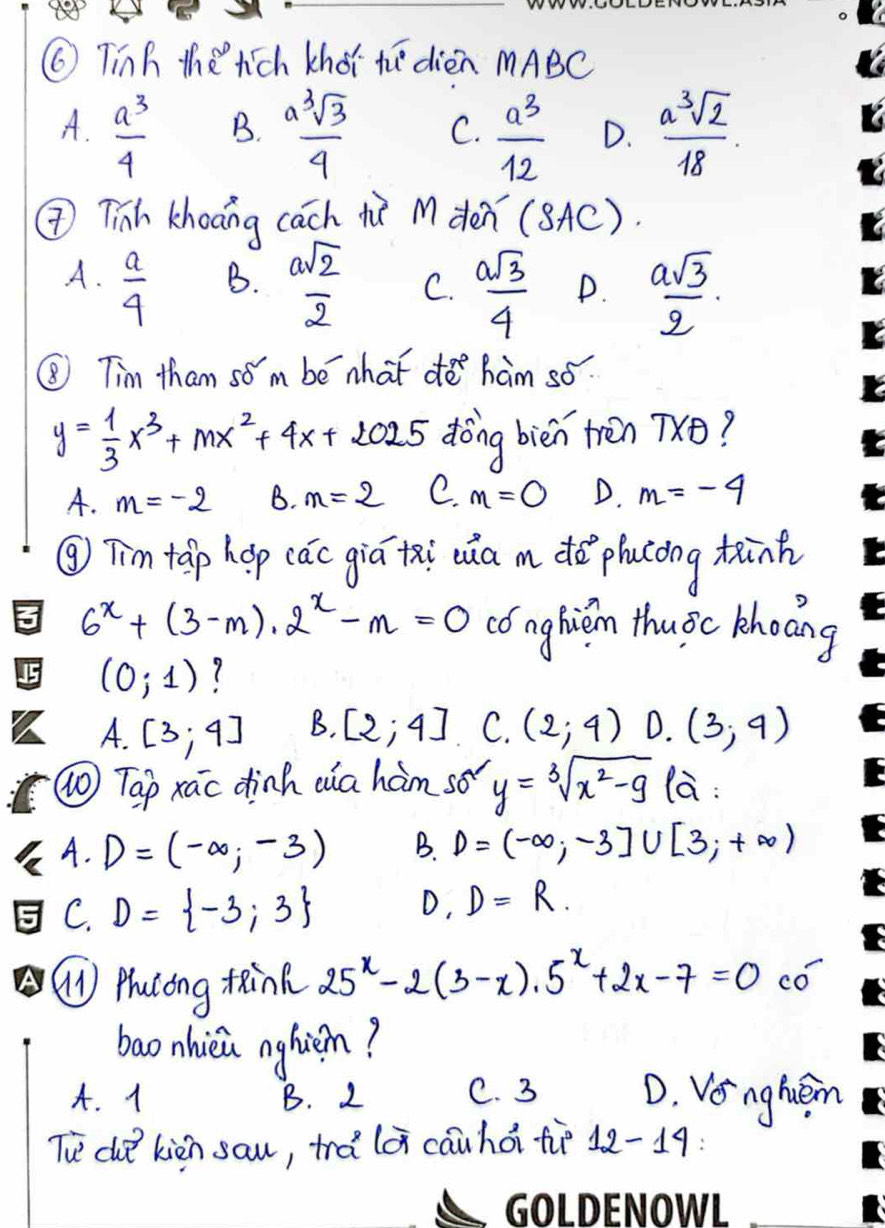 WWW.GOLDENOWL.ASIA
⑥ Tính thể tích khối tứ diện MABC
A. a³/4 B. a³√3/4 C. a³/12 D. a³√2/18.
⑦ Tính khoảng cách từ M đến (SAC).
A. a/4 B. a√2/2 C. a√3/4 D. a√3/2.
⑧ Tìm tham số m bé nhất để hàm số
y = 1/3 x³ + mx² + 4x + 2025 đồng biến trên TXĐ?
A. m = -2 B. m = 2 C. m = 0 D. m = -4
⑨ Tìm tập hợp các giá trị của m để phương trình
6ˣ + (3-m).2ˣ - m = 0 có nghiệm thuộc khoảng
(0; 1)?
A. [3; 4] B. [2; 4] C. (2; 4) D. (3; 4)
⑩ Tập xác định của hàm số y = ³√(x² - 9) là:
A. D = (-∞; -3) B. D = (-∞; -3] ∪ [3; +∞)
C. D = {-3; 3} D. D = R.
⑪ Phương trình 25ˣ - 2(3-x).5ˣ + 2x - 7 = 0 có
bao nhiêu nghiệm?
A. 1 B. 2 C. 3 D. Vô nghiệm
Từ dữ kiện sau, trả lời câu hỏi từ 12-14:
GOLDENOWL